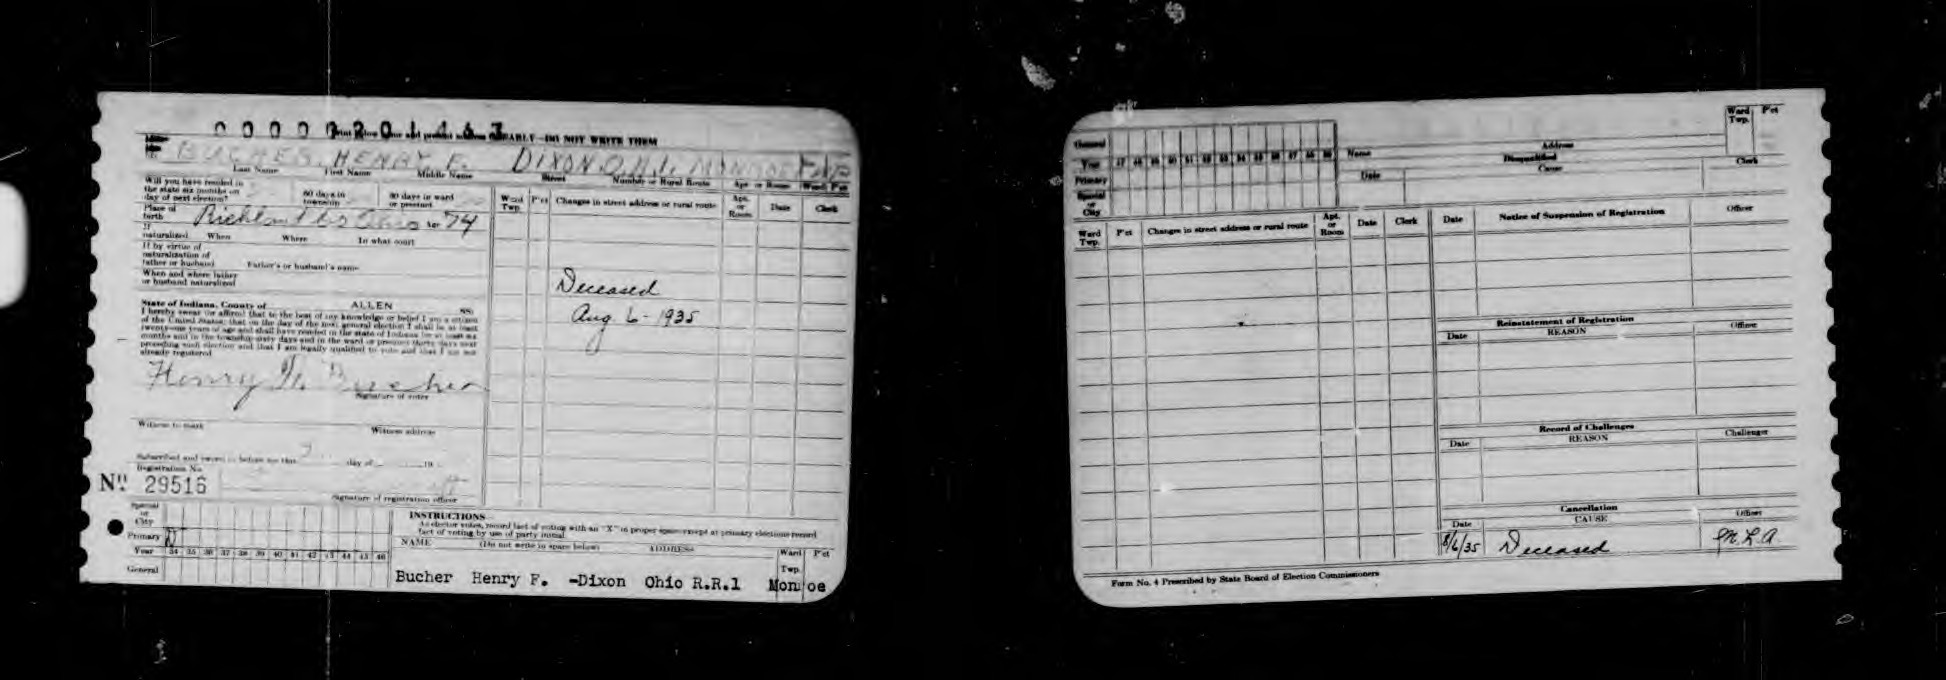 BUCHER, HENRY F. DIXON O. R.1. MONROE
Last Name First Name Middle Name Street Number or Rural Route Apt. or Room Ward P'ct
CLEARLY—DO NOT WRITE THEM
Will you have resided in
the state six months on
day of next election?
60 days in
township
30 days in ward
or precinct
Place of
birth
Age 74
If
naturalized When Where In what court
If by virtue of
naturalization of
father or husband Father's or husband's name
When and where father
or husband naturalized
State of Indiana, County of ALLEN SS:
I hereby swear (or affirm) that to the best of my knowledge or belief I am a citizen
of the United States; that on the day of the next general election I shall be at least
twenty-one years of age and shall have resided in the state of Indiana for at least six
months and in the township sixty days and in the ward or precinct thirty days next
preceding such election and that I am legally qualified to vote and that I am not
already registered
Henry F. Bucher
Signature of voter
Witness to mark Witness address
Subscribed and sworn to before me this day of 19
Registration No.
No. 29516
Signature of registration officer
Ward
Twp.
P'ct
Changes in street address or rural route
Apt.
or
Room
Date
Clerk
Deceased
Aug 6 - 1935
Special
or
City
Primary
Year 34 35 36 37 38 39 40 41 42 43 44 45 46
General
INSTRUCTIONS—
As elector votes, record fact of voting with an "X" in proper space except at primary elections record
fact of voting by use of party initial
NAME (Do not write in space below) ADDRESS Ward
Twp. P'ct
Bucher Henry F. -Dixon Ohio R.R.1 Monroe
General
Year 47 48 49 50 51 52 53 54 55 56 57 58 59
Primary
Special
or
City
Name Address Ward
Twp. P'ct
Disqualified
Date Cause Clerk
Ward
Twp.
P'ct
Changes in street address or rural route
Apt.
or
Room
Date
Clerk
Date Notice of Suspension of Registration Officer
Reinstatement of Registration
Date REASON Officer
Record of Challenges
Date REASON Challenger
Cancellation
Date CAUSE Officer
8/6/35 Deceased M.L.A.
Form No. 4 Prescribed by State Board of Election Commissioners